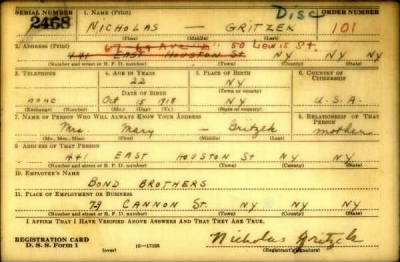 Disc
SERIAL NUMBER 1. NAME (Print) ORDER NUMBER
2468 NICHOLAS — GRITZEK 101
(First) (Middle) (Last)
2. ADDRESS (Print) 50 Lewis St.
441 EAST HOUSTON ST NY NY NY
(Number and street or R. F. D. number) (Town) (County) (State)
3. TELEPHONE 4. AGE IN YEARS 5. PLACE OF BIRTH 6. COUNTRY OF CITIZENSHIP
22 NY
DATE OF BIRTH (Town or county)
NONE Oct 15 1918 NY U.S.A.
(Exchange) (No.) (Mo.) (Day) (Yr.) (State or country)
7. NAME OF PERSON WHO WILL ALWAYS KNOW YOUR ADDRESS 8. RELATIONSHIP OF THAT PERSON
Mrs. Mary — Gritzek mother
(Mr., Mrs., Miss) (First) (Middle) (Last)
9. ADDRESS OF THAT PERSON
441 EAST HOUSTON ST NY NY NY
(Number and street or R. F. D. number) (Town) (County) (State)
10. EMPLOYER'S NAME
BOND BROTHERS
11. PLACE OF EMPLOYMENT OR BUSINESS
79 CANNON ST. NY NY NY
(Number and street or R. F. D. number) (Town) (County) (State)
I AFFIRM THAT I HAVE VERIFIED ABOVE ANSWERS AND THAT THEY ARE TRUE.
REGISTRATION CARD
D. S. S. Form 1 (over) 16—17105 Nicholas Gritzek
(Registrant's signature)